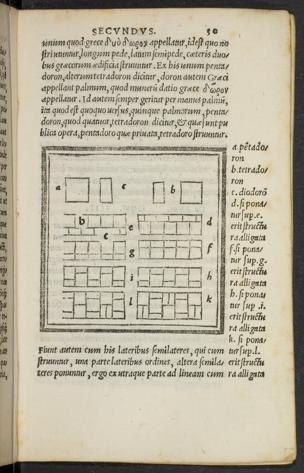 SECVNDVS. 50
unum quod græce δυὸ δῶρον appellatur, idest quo no
stri utuntur, longum pede, latum semipede, cæteris duo/
bus græcorum ædificia struuntur. Ex his unum penta/
doron, alterum tetradoron dicitur, doron autem Græci
appellant palmum, quod munerū datio græce δῶρον
appellatur. Id autem semper geritur per manus palmū,
ita quod est quoquo uersus, quinque palmorum, penta/
doron, quod quatuor, tetradoron dicitur, & quæ sunt pu
blica opera, pentadoro quæ priuata, tetradoro struuntur.
a pētado/
ron
b. tetrado/
ron
c. diodorō
d. si pona/
tur sup. e.
erit structu
ra alligata
f. si pona/
tur sup. g.
erit structu
ra alligata
h. si pona/
tur sup .i.
erit structu
ra alligata
k. si pona/
tur sup .l.
erit structu
ra alligata
a c b
b d
c e
g f
i h
l k
Fiunt autem cum his lateribus semilateres, qui cum
struuntur, una parte lateribus ordines, altera semila/
teres ponuntur, ergo ex utraque parte ad lineam cum